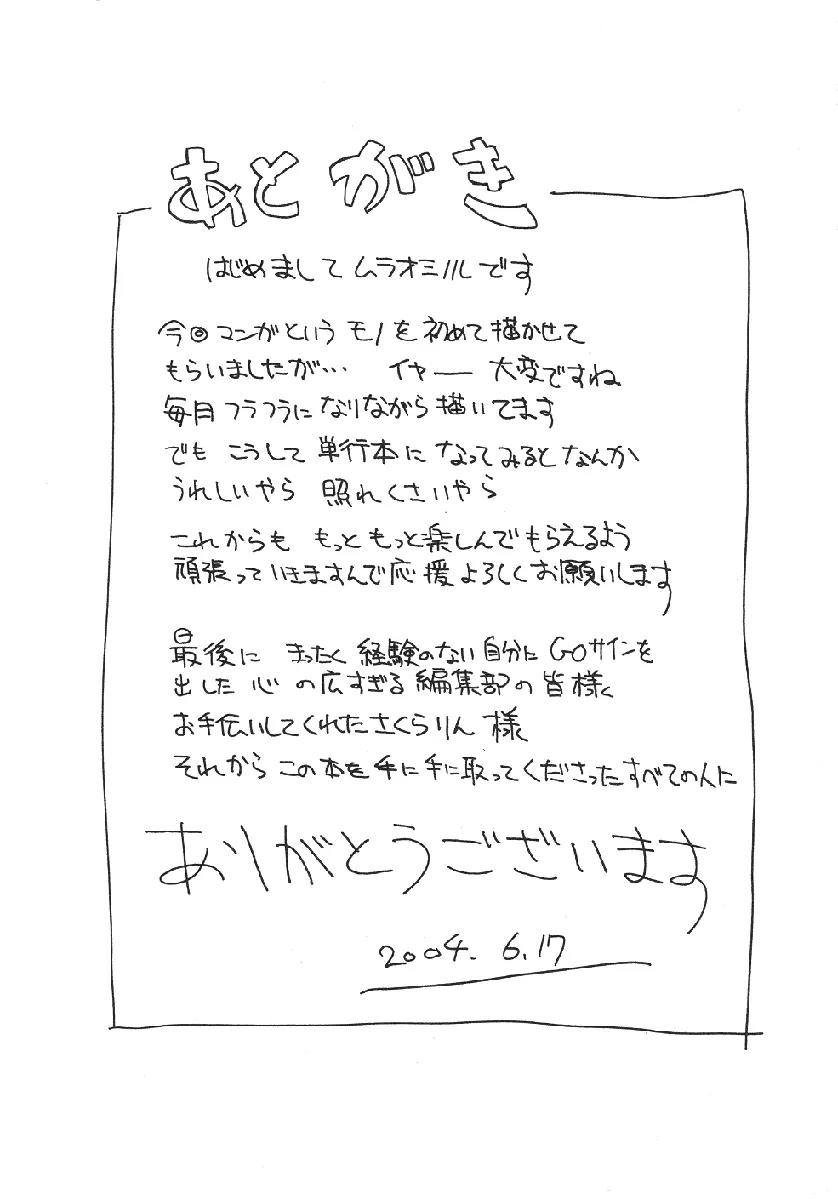 あとがき
はじめまして ムラオミノルです
今回マンガという モノを初めて描かせて
もらいましたが… イヤー 大変ですね
毎月フラフラになりながら描いてます
でも こうして 単行本に なってみるとなんか
うれしいやら 照れくさいやら
これからも もっと もっと楽しんでもらえるよう
頑張っていきますんで応援よろしくお願いします
最後に まったく経験のない自分にGOサインを
出した 心 の広すぎる編集部の皆様
お手伝いしてくれたさくらりん様
それから この本を 手に 手に取ってくださったすべての人に
ありがとうございます
2004. 6.17